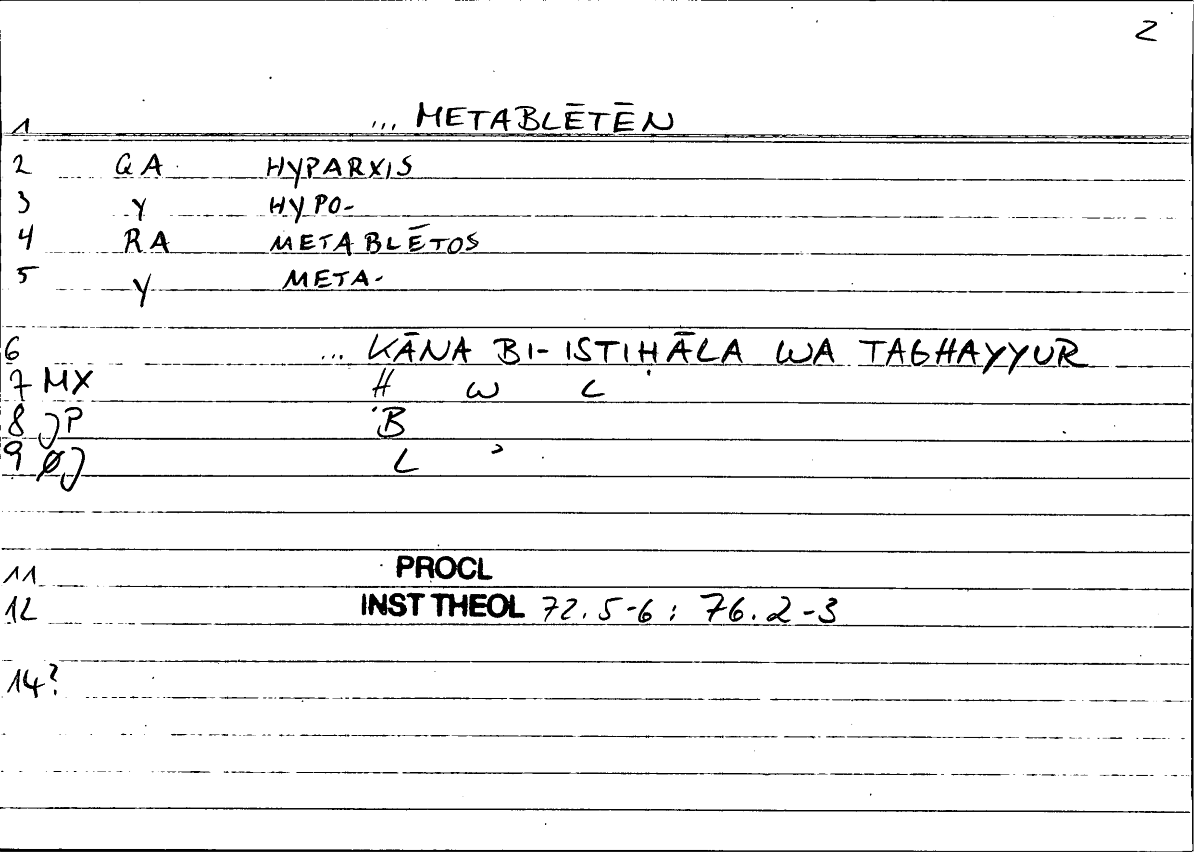 2
1 ... METABLĒTĒN
2 QA HYPARXIS
3 Y HYPO-
4 RA METABLĒTOS
5 Y META-
6 ... KĀNA BI-ISTIḤĀLA WA TAGHAYYUR
7 MX Ḥ W L
8 JP B
9 ØJ L ʾ
11 PROCL
12 INST THEOL 72.5-6: 76.2-3
14?